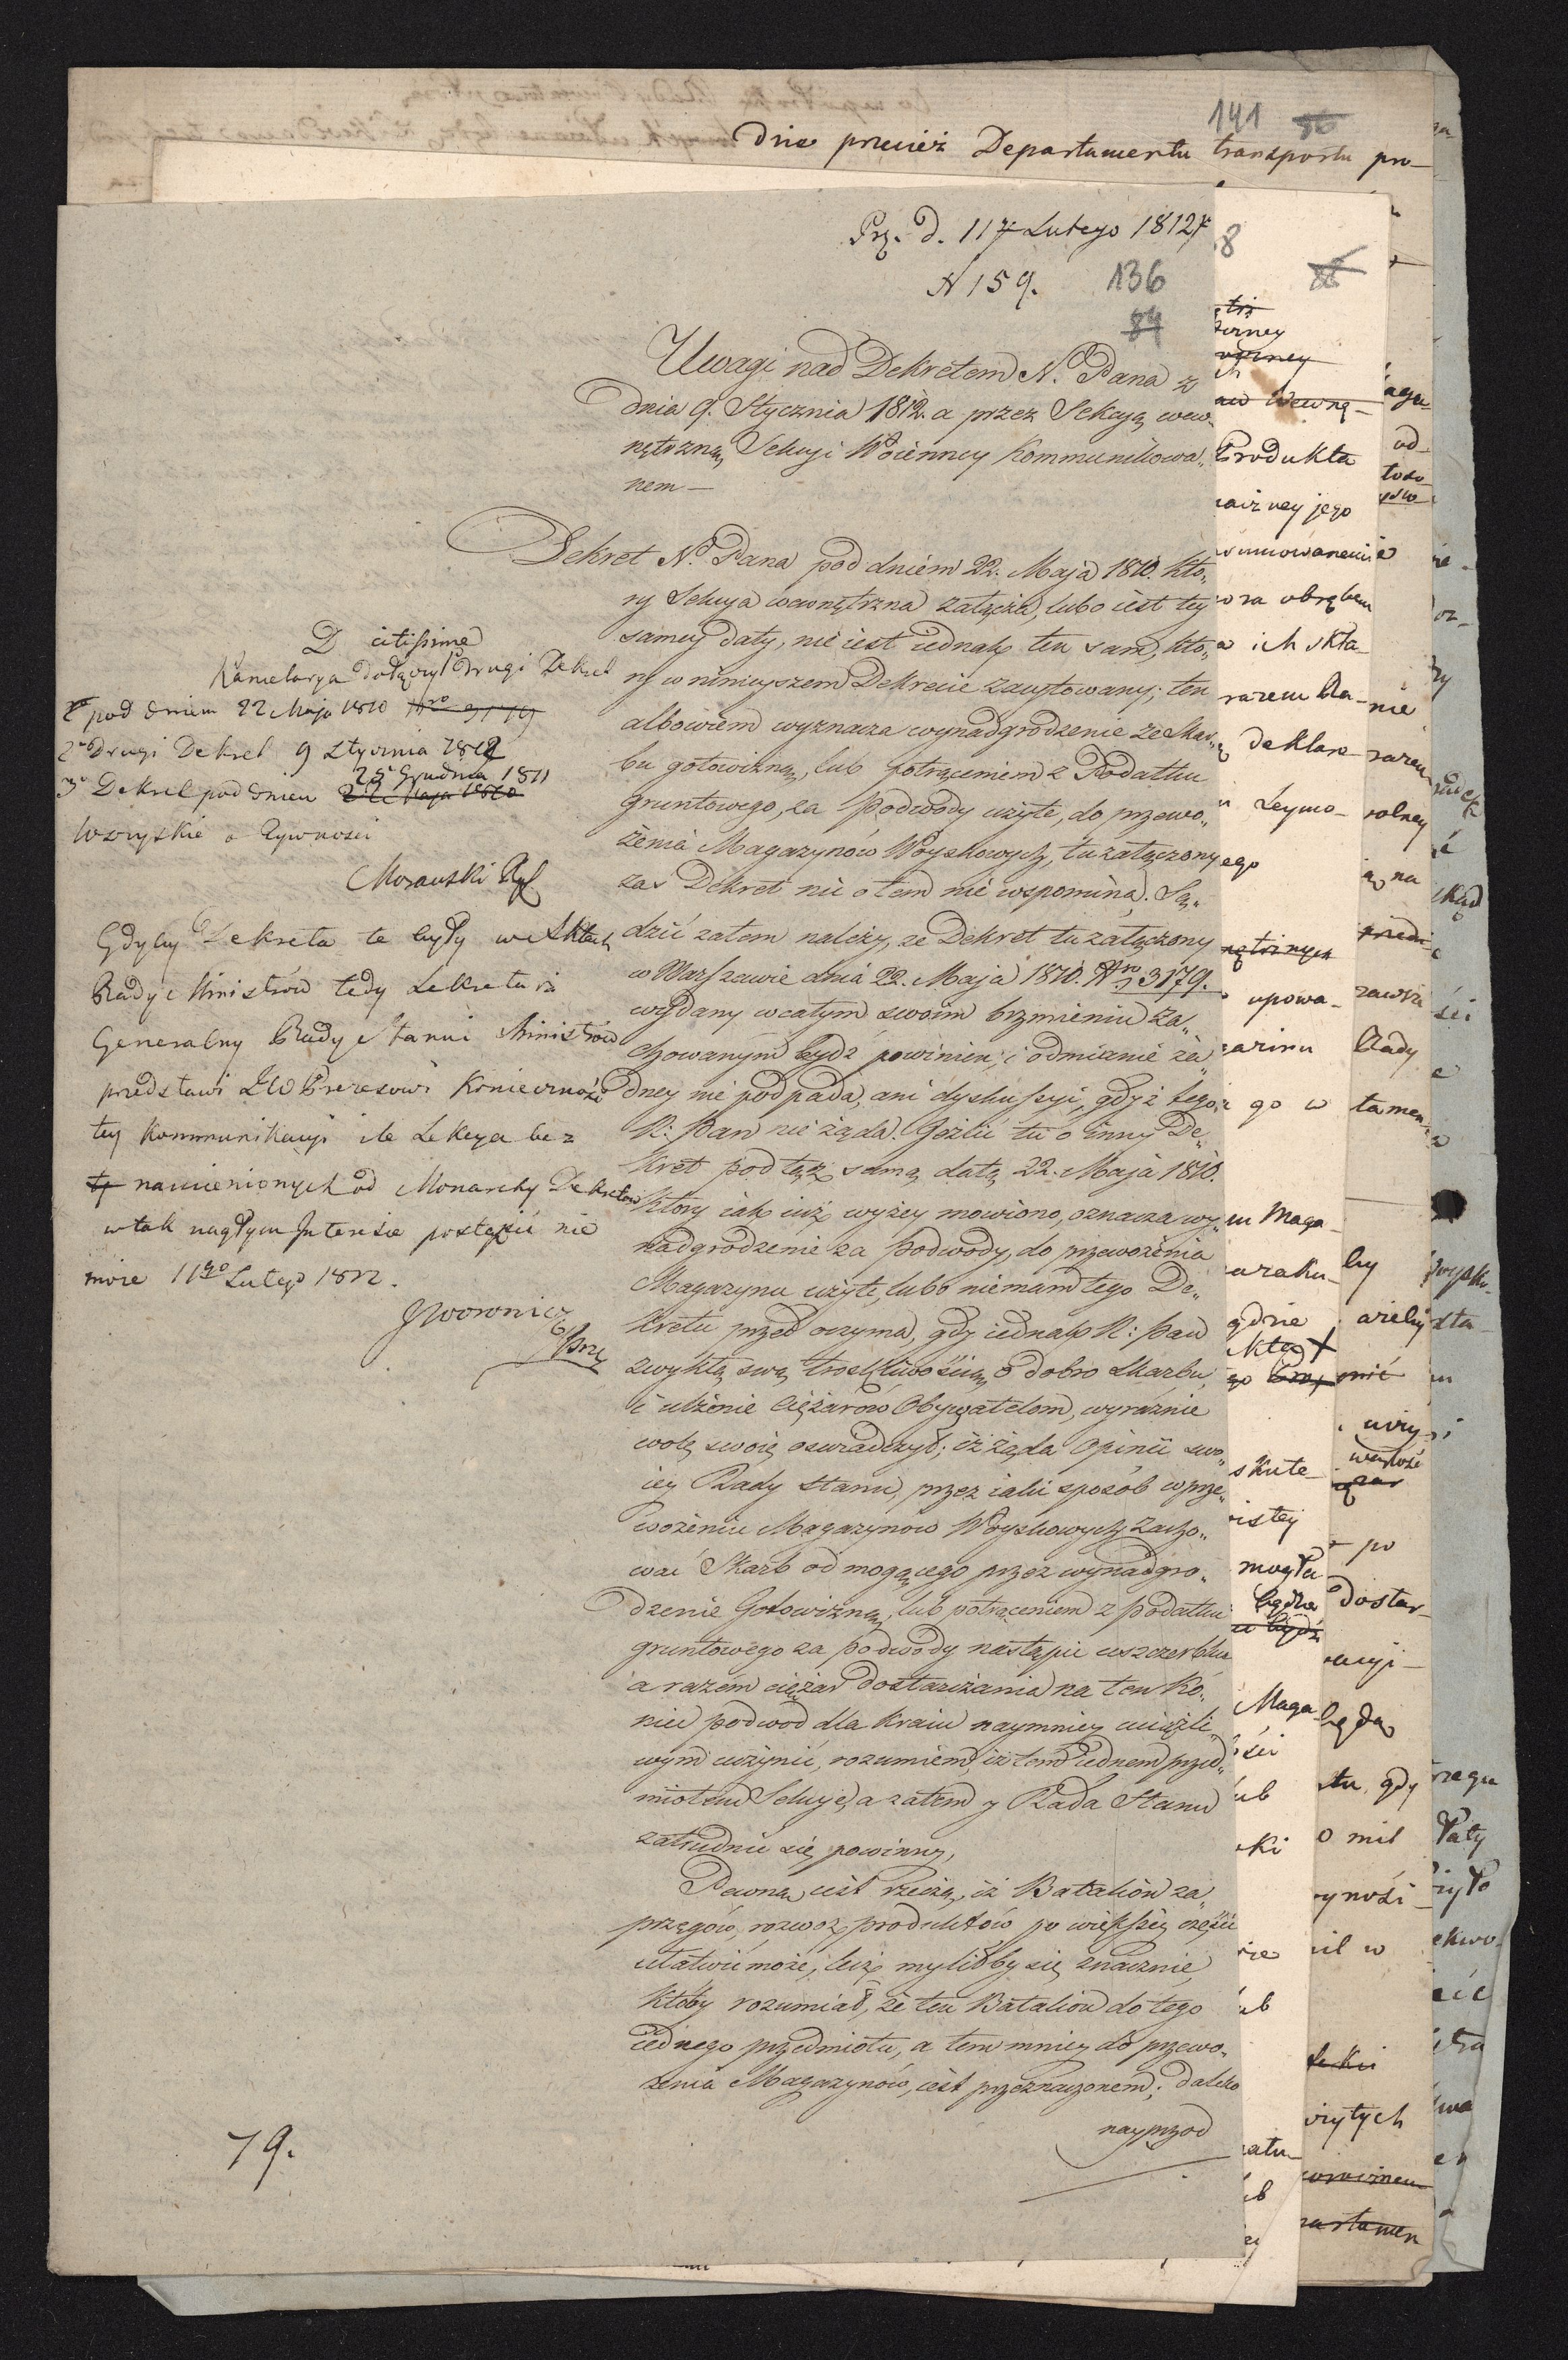 141 86
dnie przecież Departamentu transportu pro-
Prz. d. 11 Lutego 1812
N 159. 136
84
Uwagi nad Dekretem N. Pana z
dnia 9. Stycznia 1812. a przez Sekcyą wew-
nętrzną Sekcyi Woienney kommunikowa„
nem —
Dekret N. Pana pod dniem 22. Maja 1810. któ„
ry Sekcya wewnętrzna załącza, lubo iest tey
samey daty, nie iest iednak ten sam, któ„
ry w ninieyszem Dekrecie zacytowany; ten
albowiem wyznacza wynadgrodzenie ze Skar„
bu gotowizną, lub potrąceniem z Podatku
gruntowego, za podwody użyte, do przewo„
żenia Magazynów Woyskowych, tu załączony
zaś Dekret nic o tem nie wspomina. Są„
dzić zatem należy, ze Dekret tu załączony
w Warszawie dnia 22. Maja 1810. Nro 3179.
wydany w całym swoim brzmieniu za„
chowanym bydź powinien, i odmianie ża„
dney nie podpada, ani dyskussyi, gdyż tego
N: Pan nie żąda. Jeżli tu o inny De„
kret pod tąż samą datą 22. Maja 1810.
który iak iuż wyżey mowiono, oznacza wy„
nadgrodzenie za podwody, do przewożenia
Magazynu użyte, lubo niemam tego De„
kretu przed oczyma, gdy iednak N: Pan
zwykłą swą troskliwością o dobro Skarbu,
i ulżenie ciężarów Obywatelom, wyraźnie
wolę swoię oswiadczył; iż żąda Opinii swo„
iey Rady Stanu, przez iaki sposób w prze„
wożeniu Magazynow Woyskowych zacho„
wać Skarb od mogącego przez wynadgro„
dzenie Gotowizną, lub potrąceniem z podatku
gruntowego za podwody nastąpić uszczerbku
a razem ciężar dostarczania na ten ko„
niec podwod dla kraiu naymniey uciążli„
wym uczynić, rozumiem, iż tem iednem przed„
miotem Sekcye, a zatem y Rada Stanu
zatrudnić się powinny,
Pewną iest rzeczą, iż Batalion za„
przęgów, rozwoz produktów po większey części
ułatwić może, lecz myliłby się znacznie,
ktoby rozumiał, że ten Batalion do tego
iednego przedmiotu, a tem mniey do przewo„
żenia Magazynów, iest przeznaczonem; daleko
nayprzod
D citissime
Kancelarya dołączy drugi Dekret
pod dniem 22 Maja 1810 Nro 3179
2do Drugi Dekret 9 Stycznia 1812
3o Dekret pod dniem 22 Maja 1810 25 Grudnia 1811
Wszystkie o żywności
Morawski Ref
Gdyby Dekreta te były w Aktach
Rady Ministrów tedy Sekretarz
Generalny Rady Stanu i Ministrów
przedstawi JW Prezesowi konieczność
tey kommunikacyi ile Sekcya bez
ty namienionych od Monarchy Dekretów
w tak nagłym Interesie postąpić nie
może 11go Lutego 1812.
Woronicz
Prez
79.
8
86
Produkta
jego
obrębem
ich skła-
razem Ra-
deklare-
Seymo-
upowa-
go w
m Maga-
gdzie
skute-
mogła
będzie
Maga-
od-
nie
rolney
na
Rady
tamen-
by
po
dostar-
będą
gdy
o mil
żytych